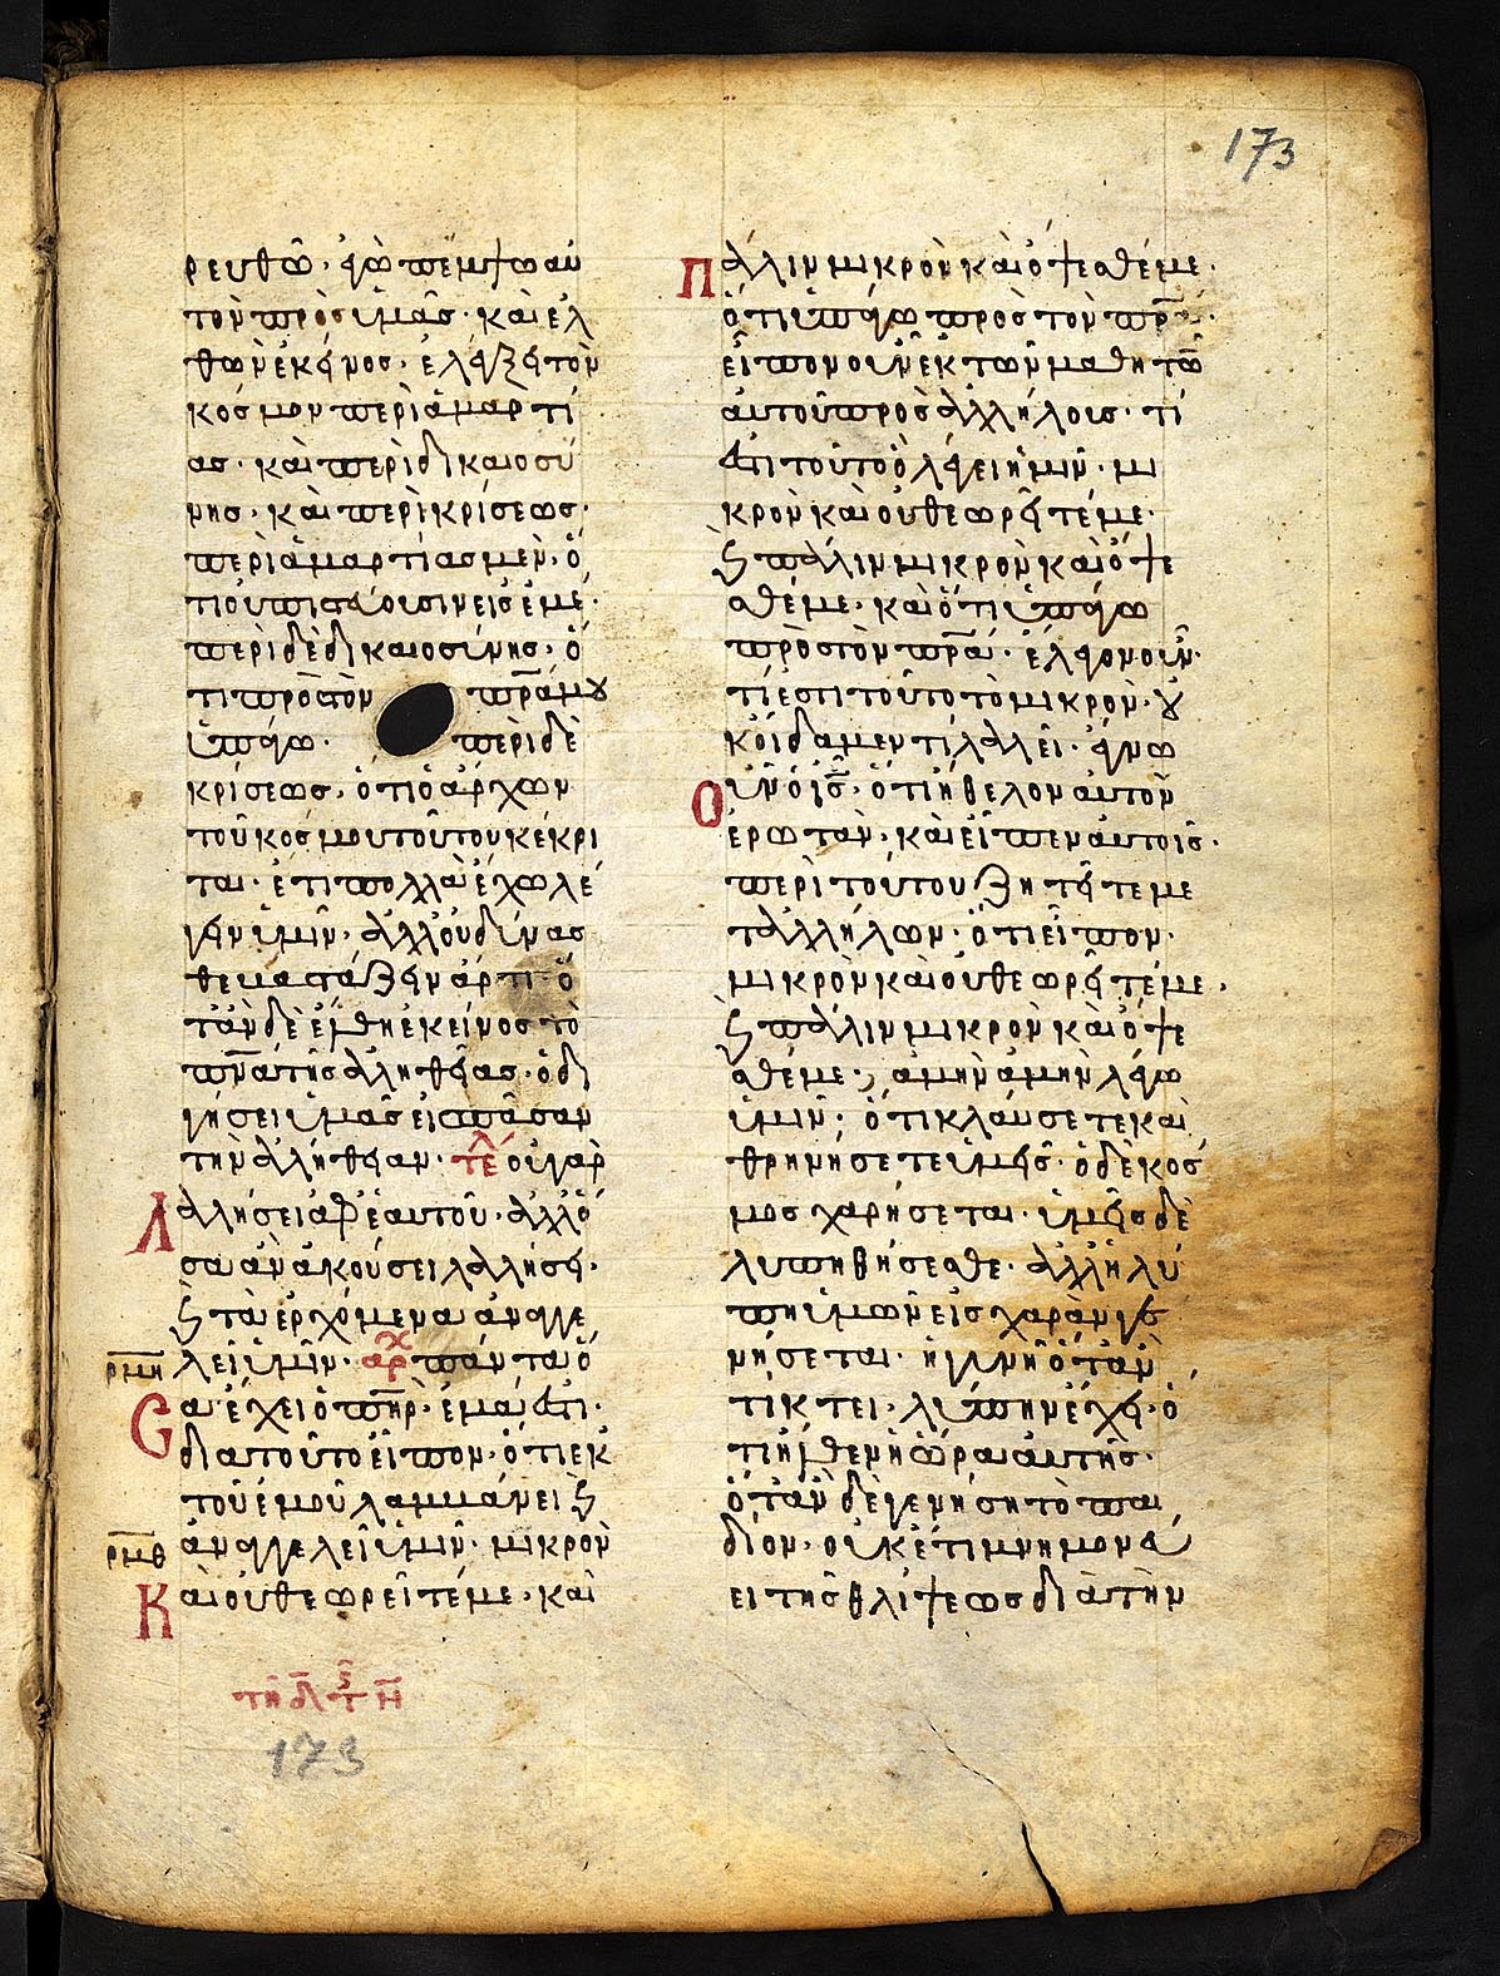 173
ρευθῶ· ἐγὼ πέμψω αὐ
τὸν πρὸς ὑμᾶς· καὶ ἐλ
θὼν ἐκεῖνος· ἐλέγξει τὸν
κόσμον περὶ ἁμαρτί
ας· καὶ περὶ δικαιοσύ
νης· καὶ περὶ κρίσεως·
περὶ ἁμαρτίας μὲν· ὅ
τι οὐ πιστεύουσιν εἰς ἐμέ·
περὶ δὲ δικαιοσύνης· ὅ
τι πρὸς τὸν πρ̅α μου
ὑπάγω· περὶ δὲ
κρίσεως· ὅτι ὁ ἄρχων
τοῦ κόσμου τούτου κέκρι
ται· ἔτι πολλὰ ἔχω λέ
γειν ὑμῖν· ἀλλ' οὐ δύνασ
θε βαστάζειν ἄρτι· ὅ
τὰν δὲ ἔλθη ἐκεῖνος τὸ
πν̅α τῆς ἀληθείας· ὁδι
γήσει ὑμᾶς εἰς πᾶσαν
τὴν ἀλήθειαν· τελ οὐ γὰρ
Λ αλήσει ἀφ' ἑαυτοῦ· ἀλλ' ὅ
σα ἂν ἀκούσει λαλήσει·
ϗ τὰ ἐρχόμενα ἀναγγε
ρμη λεῖ ὑμῖν· αρχ πάντα ὅ
Ε α ἔχει ὁ πη̅ρ· ἐμά ἐστι·
διατοῦτο εἶπον· ὅτι ἐκ
τοῦ ἐμοῦ λαμμάνει ϗ
ρμθ ἀναγγελεῖ ὑμῖν· μικρὸν
Κ αὶ οὐ θεωρεῖτέ με· καὶ
τῆ δ τ ξ η
173
Π άλιν μικρὸν καὶ ὄψεσθέ με·
ὅτι ὑπάγω πρὸς τὸν πρ̅α·
εἶπον οὖν ἐκ τῶν μαθητῶ
αὐτοῦ πρὸς ἀλλήλους· τί
ἐστι τοῦτο ὃ λέγει ἡμῖν· μι
κρὸν καὶ οὐ θεωρεῖτέ με·
ϗ πάλιν μικρὸν καὶ ὄψε
σθέ με· καὶ ὅτι ὑπάγω
πρὸς τὸν πρ̅α· ἔλεγον οὖν·
τί ἐστι τοῦτο τὸ μικρὸν· οὐ
κ οἴδαμεν τί λαλεῖ· ἔγνω
Ο ὖν ὁ ι̅ς· ὅτι ἤθελον αὐτὸν
ἐρωτᾶν· καὶ εἶπεν αὐτοῖς·
περὶ τούτου ζητεῖτε με
τ' ἀλλήλων· ὅτι εἶπον·
μικρὸν καὶ οὐ θεωρεῖτέ με·
ϗ πάλιν μικρὸν καὶ ὄψε
σθέ με· ἀμὴν ἀμὴν λέγω
ὑμῖν· ὅτι κλαύσετε καὶ
θρηνήσετε ὑμεῖς· ὁ δὲ κόσ
μος χαρήσεται· ὑμεῖς δὲ
λυπηθήσεσθε· ἀλλ' ἡ λύ
πη ὑμῶν εἰς χαρὰν γε
νήσεται· ἡ γυνὴ ὅταν
τίκτει· λύπην ἔχει· ὅ
τι ἦλθεν ἡ ὥρα αὐτῆς·
ὅταν δὲ γενήση τὸ παι
δίον· οὐκέτι μνημονεύ
ει τῆς θλίψεως διὰ τὴν